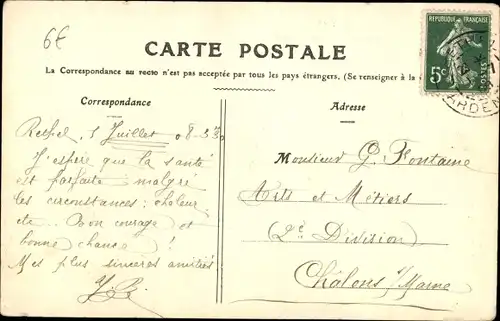 6€
CARTE POSTALE
La Correspondance au recto n'est pas acceptée par tous les pays étrangers. (Se renseigner à la
RÉPUBLIQUE FRANÇAISE
5c
POSTES
Correspondance
Rethel, 5 Juillet 08
J'espère que la santé
est parfaite malgré
les circonstances : chaleur
etc.. Bon courage et
bonne chance !
Mes plus sincères amitiés
Adresse
Monsieur G. Fontaine
Arts et Métiers
(2e Division)
Châlons s/Marne